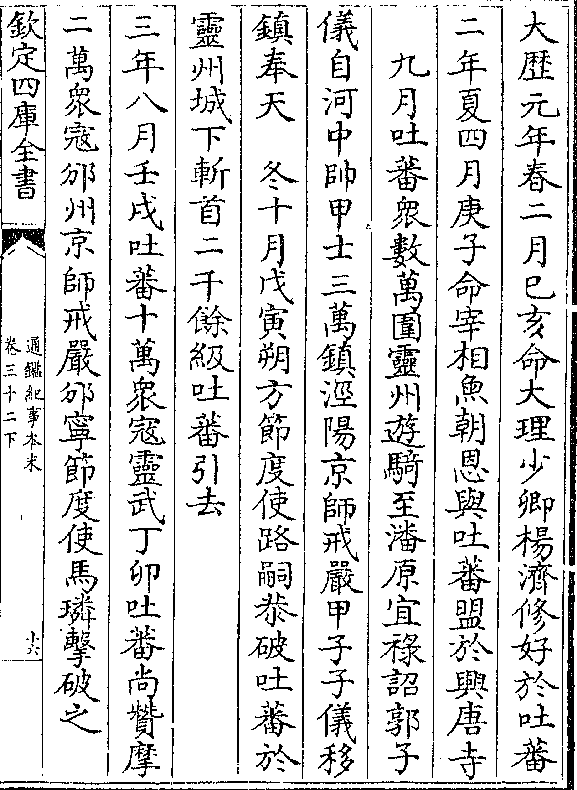 大歴元年春二月己亥命大理少卿楊濟修好於吐蕃
二年夏四月庚子命宰相魚朝恩與吐蕃盟於興唐寺
九月吐蕃衆數萬圍靈州遊騎至潘原宜祿詔郭子
儀自河中帥甲士三萬鎮涇陽京師戒嚴甲子子儀移
鎮奉天　冬十月戊寅朔方節度使路嗣恭破吐蕃於
靈州城下斬首二千餘級吐蕃引去
三年八月壬戌吐蕃十萬衆寇靈武丁卯吐蕃尚贊摩
二萬衆寇邠州京師戒嚴邠寧節度使馬璘擊破之
欽定四庫全書
通鑑紀事本末
卷三十二下
十六